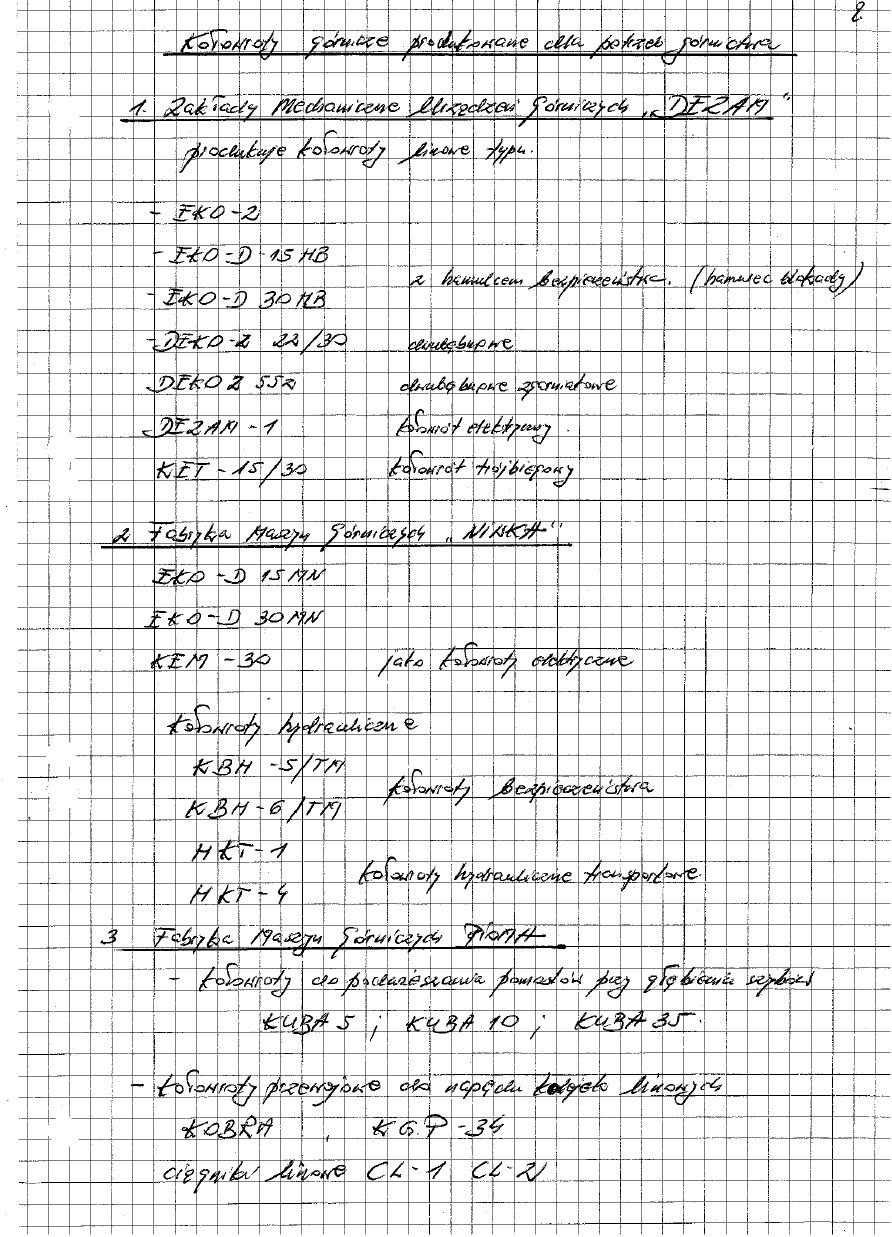 2
Kołowroty górnicze produkowane dla potrzeb górnictwa
1. Zakłady Mechaniczne Urządzeń Górniczych „DEZAM”
produkuje kołowroty linowe typu.
- EKO-2
- EKO-D-15HB
z hamulcem bezpieczeństwa. (hamulec blokady)
- EKO-D 30HB
- DEKO-2 22/30 dwubębnowe
DEKO 2 55z dwubębnowe zgarniakowe
DEZAM-1 kołowrót elektryczny.
KET-15/30 kołowrót trójbiegowy
2 Fabryka Maszyn Górniczych „NIWKA”
EKO-D 15MN
EKO-D 30MN
KEM-30 jako kołowroty elektryczne
Kołowroty hydrauliczne
KBH-5/TM
kołowroty bezpieczeństwa
KBH-6/TM
HKT-1
kołowroty hydrauliczne transportowe
HKT-4
3 Fabryka Maszyn Górniczych PIOMA
- kołowroty do podwieszania pomostów przy głębieniu szybów
KUBA 5 ; KUBA 10 ; KUBA 35.
- kołowroty przewojowe do napędu kolejek linowych
KOBRA , KGP-34
ciągniki linowe CL-1 CL-2